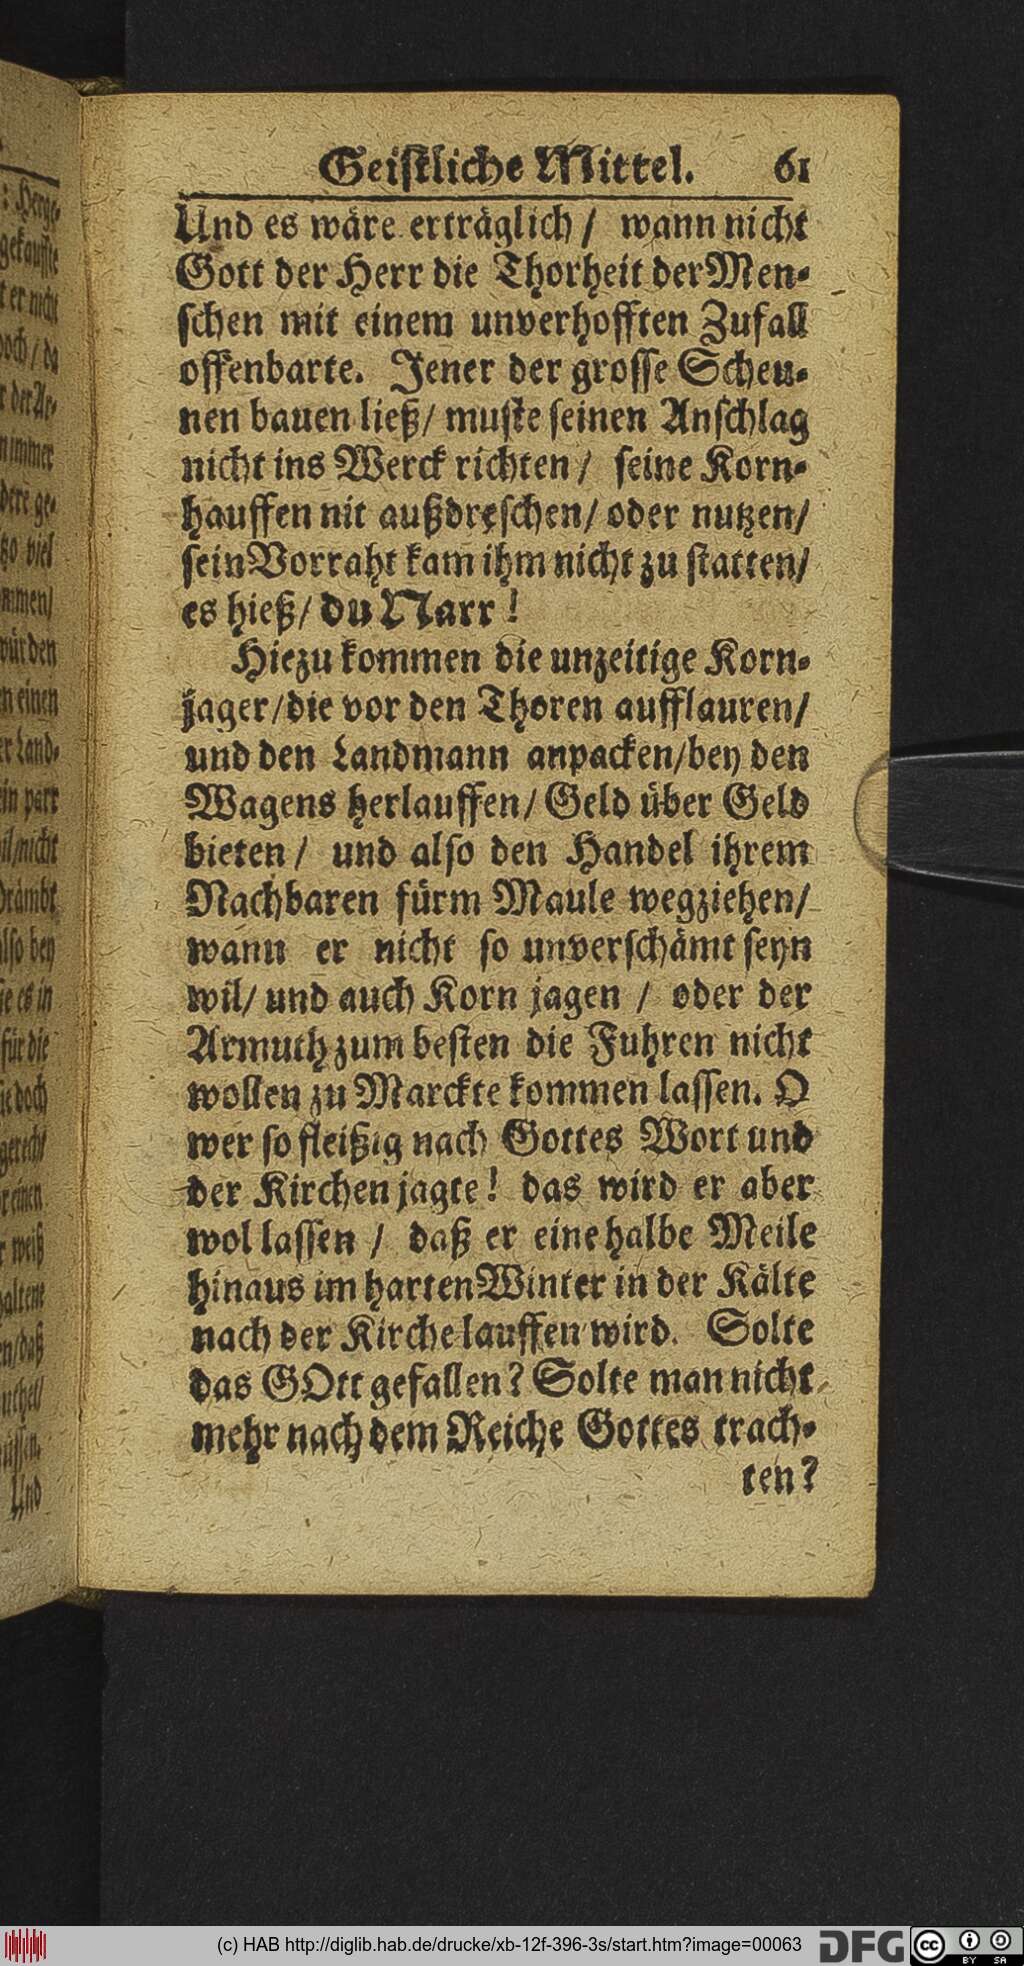 Geistliche Mittel. 61
Und es wäre erträglich / wann nicht
Gott der Herr die Thorheit der Men-
schen mit einem unverhofften Zufall
offenbarte. Jener der grosse Scheu-
nen bauen ließ / muste seinen Anschlag
nicht ins Werck richten / seine Korn-
hauffen nit außdreschen / oder nutzen /
sein Vorraht kam ihm nicht zu statten /
es hieß / du Narr!
Hiezu kommen die unzeitige Korn-
jager / die vor den Thoren aufflauren /
und den Landmann anpacken / bey den
Wagens herlauffen / Geld über Geld
bieten / und also den Handel ihrem
Nachbaren fürm Maule wegziehen /
wann er nicht so unverschämt seyn
wil / und auch Korn jagen / oder der
Armuth zum besten die Fuhren nicht
wollen zu Marckte kommen lassen. O
wer so fleißig nach Gottes Wort und
der Kirchen jagte! das wird er aber
wol lassen / daß er eine halbe Meile
hinaus im harten Winter in der Kälte
nach der Kirche lauffen wird. Solte
das GOtt gefallen? Solte man nicht
mehr nach dem Reiche Gottes trach-
ten?
: Herge-
gekauffte
t er nicht
doch / da
r der Ar-
n immer
dere ge-
tzo viel
mmen /
würden
n einen
er Land-
in parr
il / nicht
drämbt
also bey
ie es in
für die
ie doch
gerecht
r einen
r weiß
haltene
en / daß
müssen.
Und
(c) HAB http://diglib.hab.de/drucke/xb-12f-396-3s/start.htm?image=00063
DFG
cc
BY SA